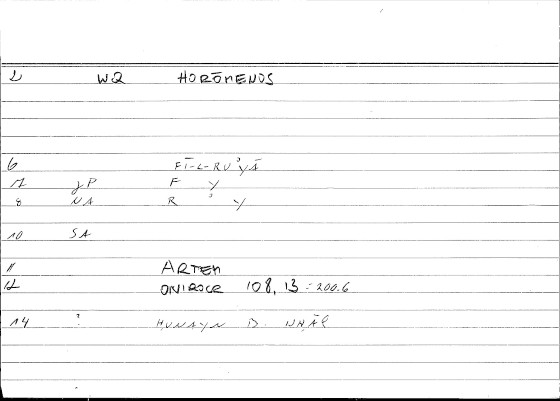 2 WQ HORŌMENOS
6 FĪ-L-RUʾYĀ
7 JP F Y
8 NA R ʾ Y
10 SA
11 ARTEM
12 ONIROCR 108, 13 = 200.6
14 ? HUNAYN B.